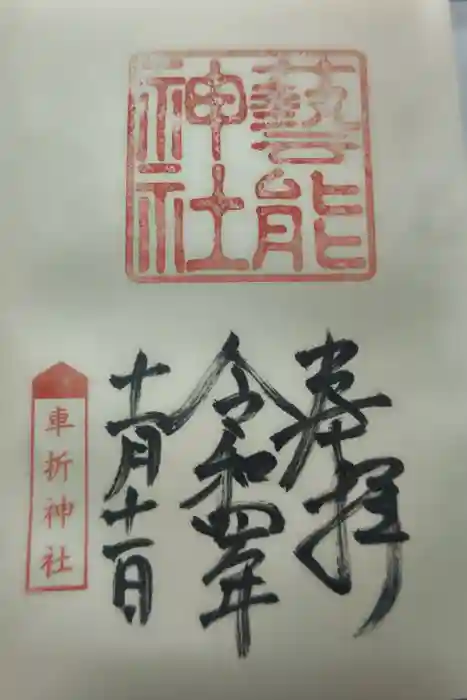 藝能
神社
奉拝
令和四年
十一月十一日
車折神社